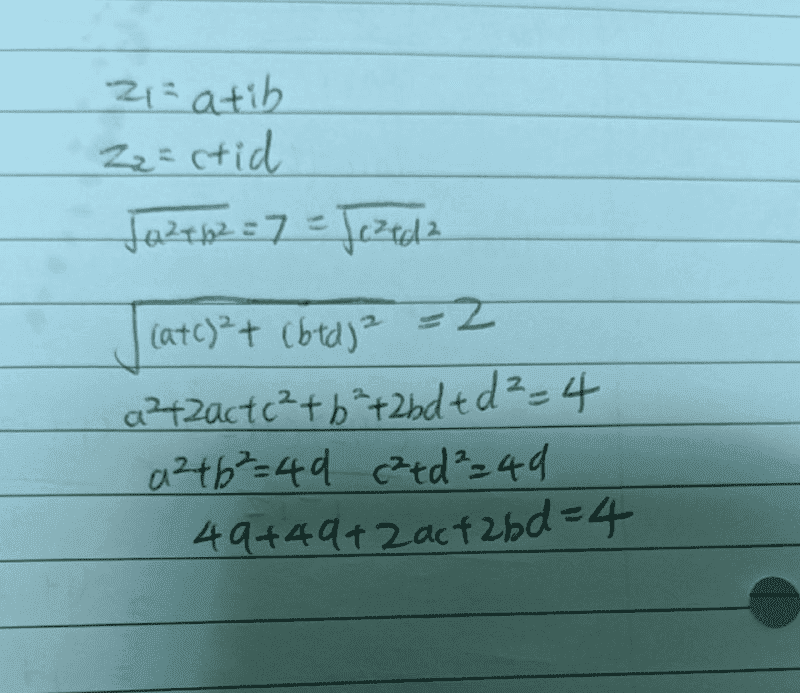 z₁ = a+ib
z₂ = c+id
√(a²+b²) = 7 = √(c²+d²)
√((a+c)² + (b+d)²) = 2
a²+2ac+c²+b²+2bd+d² = 4
a²+b²=49 c²+d²=49
49+49+2ac+2bd=4